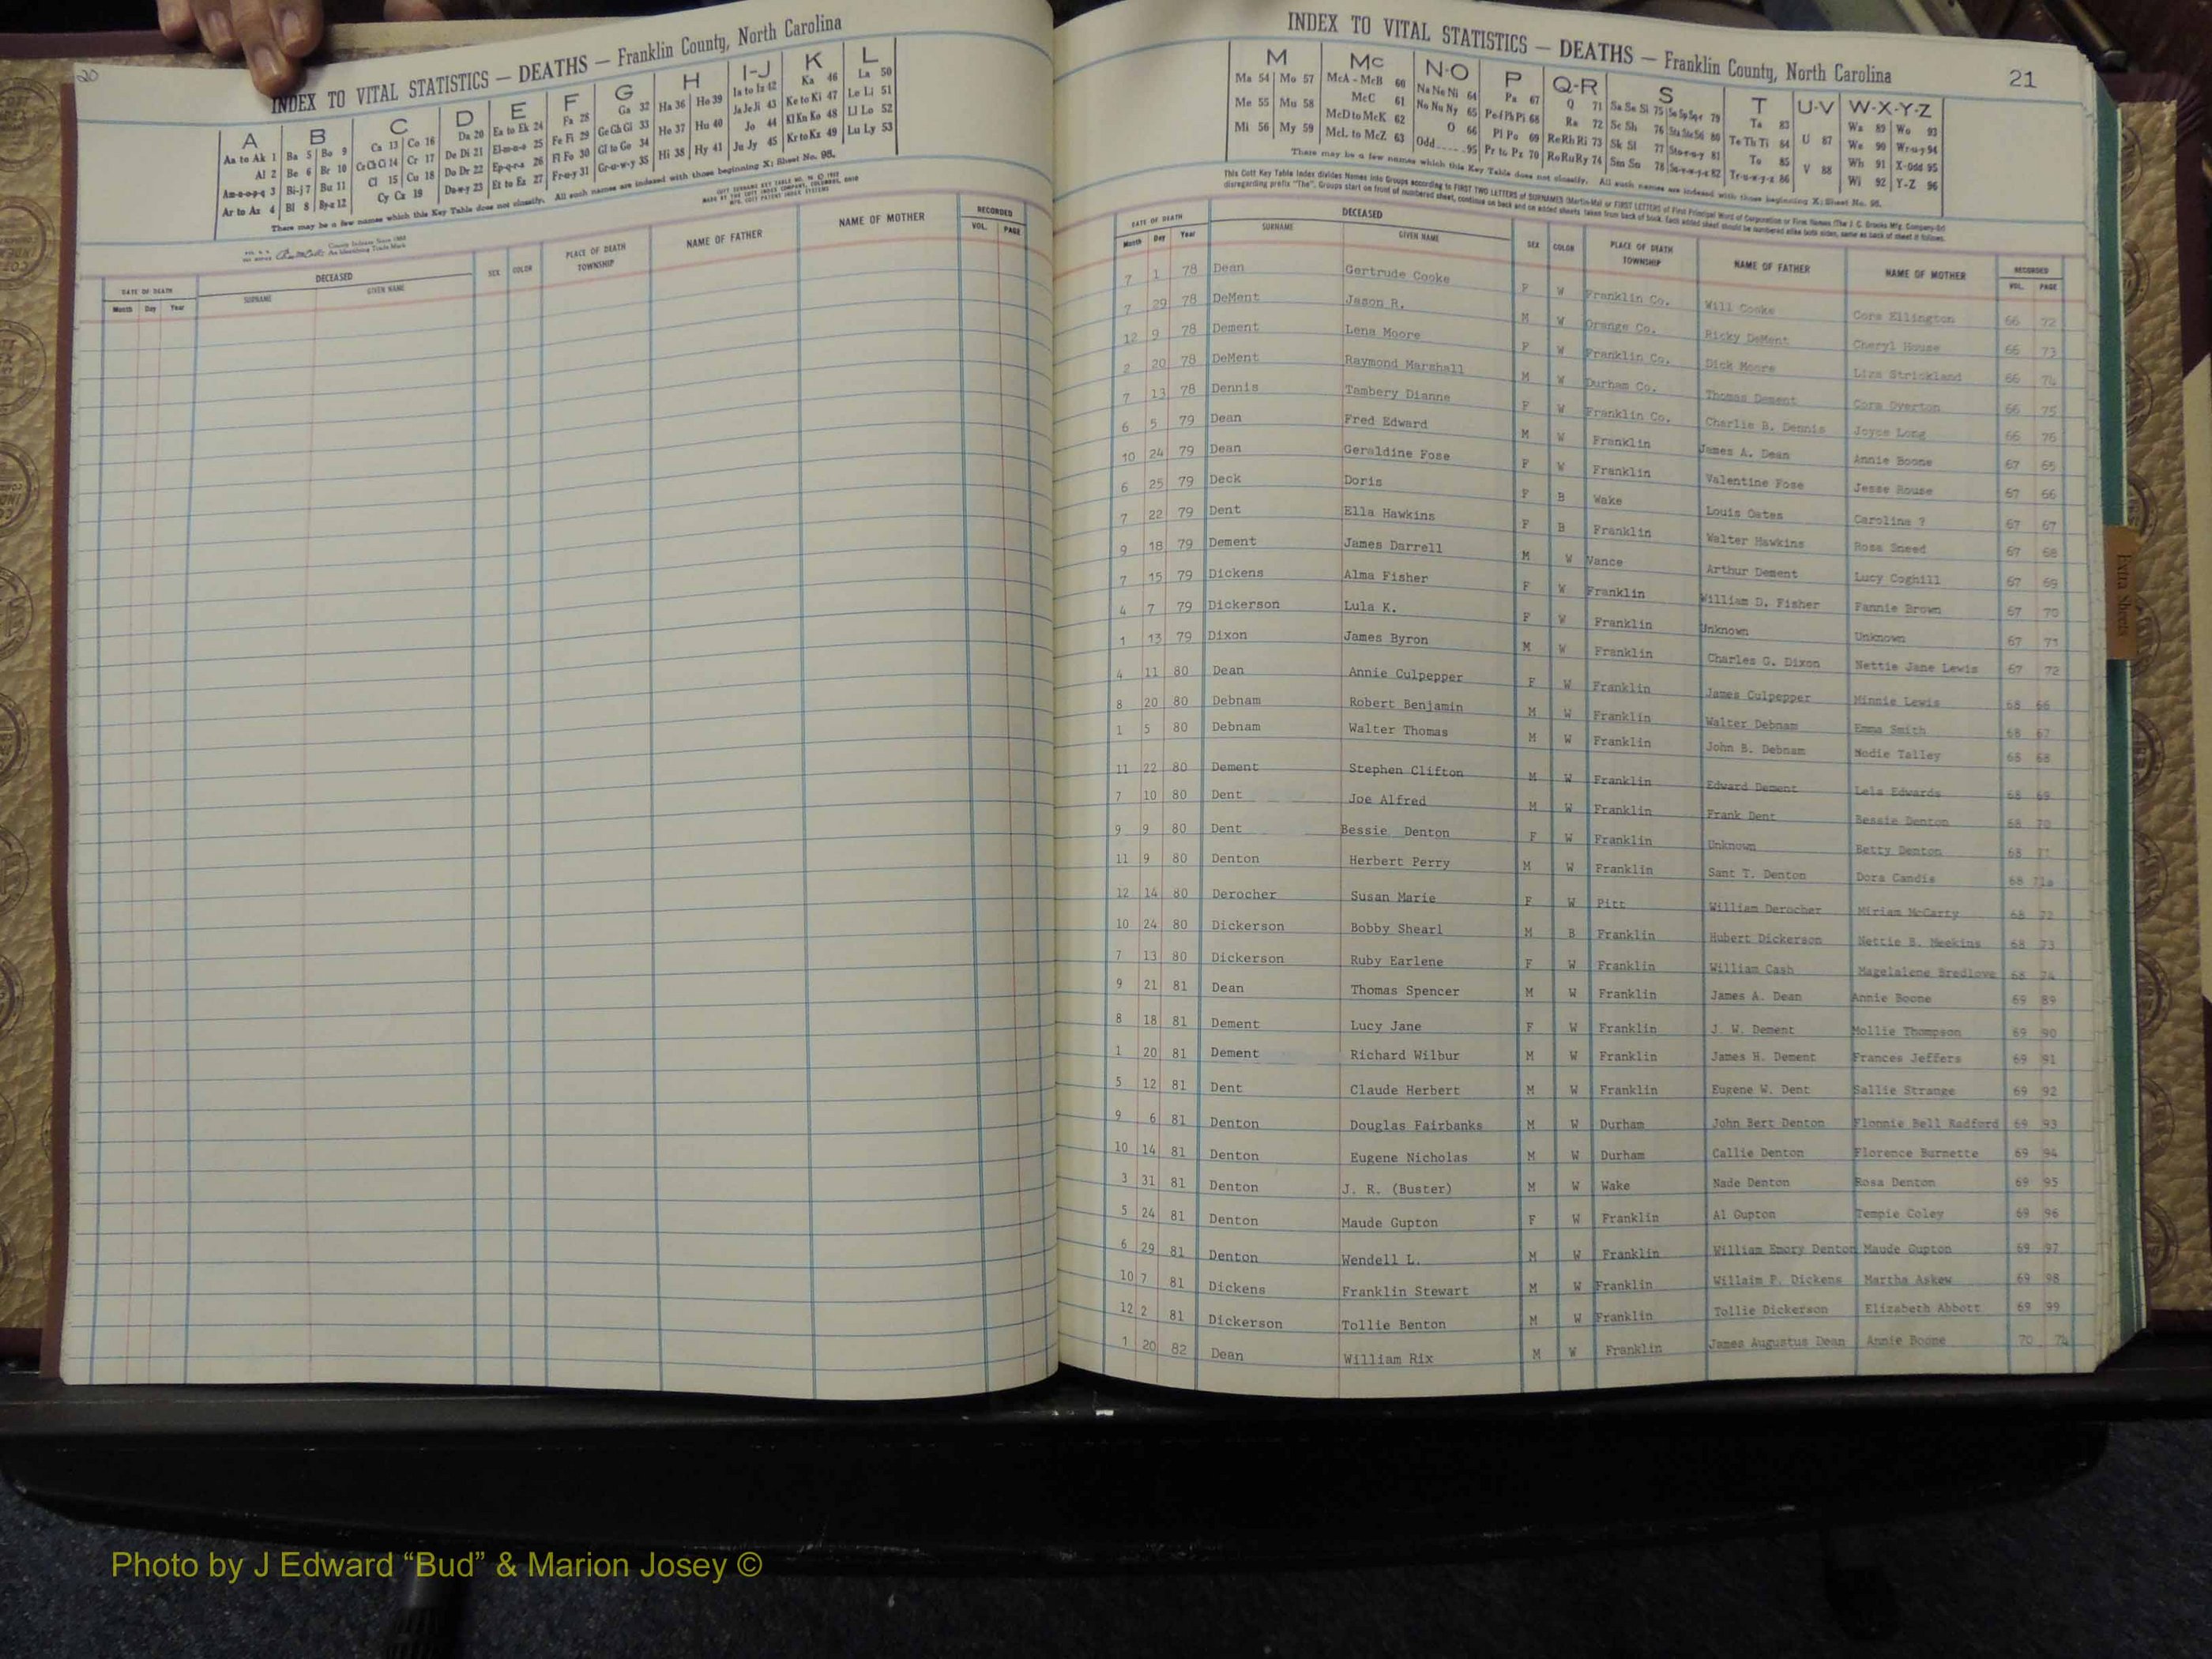 20
INDEX TO VITAL STATISTICS — DEATHS — Franklin County, North Carolina
A B C D E F G H I-J K L
Aa to Ak 1 Ba 5 Bo 9 Ca 13 Co 16 Da 20 Ea to Ek 24 Fa 28 Ga 32 Ha 36 Ho 39 Ia to Iz 42 Ka 46 La 50
Al 2 Be 6 Br 10 Ce Ch Ci 14 Cr 17 De Di 21 El-m-n-o 25 Fe Fi 29 Ge Gh Gi 33 He 37 Hu 40 Ja Je Ji 43 Ke to Ki 47 Le Li 51
Am-n-o-p-q 3 Bi-j 7 Bu 11 Cl 15 Cu 18 Do Dr 22 Ep-q-r-s 26 Fl Fo 30 Gl to Go 34 Hi 38 Hy 41 Jo 44 Kl Kn Ko 48 Ll Lo 52
Ar to Az 4 Bl 8 By-z 12 Cy Cz 19 Du-w-y 23 Et to Ez 27 Fr-u-y 31 Gr-u-w-y 35 Ju Jy 45 Kr to Kz 49 Lu Ly 53
There may be a few names which this Key Table does not classify. All such names are indexed with those beginning X; Sheet No. 95.
DATE OF DEATH DECEASED SEX COLOR PLACE OF DEATH TOWNSHIP NAME OF FATHER NAME OF MOTHER RECORDED
Month Day Year SURNAME GIVEN NAME VOL. PAGE
INDEX TO VITAL STATISTICS — DEATHS — Franklin County, North Carolina
21
M Mc N-O P Q-R S T U-V W-X-Y-Z
Ma 54 Mo 57 McA - McB 60 Na Ne Ni 64 Pa 67 Q 71 Sa Se Si 75 So Sp Sq-r 79 Ta 83 U 87 Wa 89 Wo 93
Me 55 Mu 58 McC 61 No Nu Ny 65 Pe Pf Ph Pi 68 Ra 72 Sc Sh 76 Sta Ste S6 80 Te Th Ti 84 V 88 We 90 Wr-u-y 94
Mi 56 My 59 McD to McK 62 O 66 Pl Po 69 Re Rh Ri 73 Sk Sl 77 Sto-r-u-y 81 To 85 Wh 91 X-Odd 95
McL to McZ 63 Odd 95 Pr to Pz 70 Ro Ru Ry 74 Sm Sn 78 Su-v-w-y-z 82 Tr-u-w-y-z 86 Wi 92 Y-Z 96
There may be a few names which this Key Table does not classify. All such names are indexed with those beginning X; Sheet No. 95.
This Cott Key Table Index divides Names into Groups according to FIRST TWO LETTERS of SURNAMES (Martin-Ma) or FIRST LETTERS of First Principal Word of Corporation or Firm Names (The J. C. Brooks Mfg. Company-Br)
disregarding prefix "The". Groups start on front of numbered sheet, continue on back and on added sheets taken from back of book. Each added sheet should be numbered alike both sides, same as back of sheet it follows.
DATE OF DEATH DECEASED SEX COLOR PLACE OF DEATH TOWNSHIP NAME OF FATHER NAME OF MOTHER RECORDED
Month Day Year SURNAME GIVEN NAME VOL. PAGE
7 1 78 Dean Gertrude Cooke F W Franklin Co. Will Cooke Cora Ellington 66 72
7 29 78 DeMent Jason R. M W Orange Co. Ricky DeMent Cheryl House 66 73
12 9 78 Dement Lena Moore F W Franklin Co. Dick Moore Liza Strickland 66 74
2 20 78 DeMent Raymond Marshall M W Durham Co. Thomas Dement Cora Overton 66 75
7 13 78 Dennis Tambery Dianne F W Franklin Co. Charlie B. Dennis Joyce Long 66 76
6 5 79 Dean Fred Edward M W Franklin James A. Dean Annie Boone 67 65
10 24 79 Dean Geraldine Fose F W Franklin Valentine Fose Jesse Rouse 67 66
6 25 79 Deck Doris F B Wake Louis Oates Carolina ? 67 67
7 22 79 Dent Ella Hawkins F B Franklin Walter Hawkins Rosa Sneed 67 68
9 18 79 Dement James Darrell M W Vance Arthur Dement Lucy Coghill 67 69
7 15 79 Dickens Alma Fisher F W Franklin William D. Fisher Fannie Brown 67 70
4 7 79 Dickerson Lula K. F W Franklin Unknown Unknown 67 71
1 13 79 Dixon James Byron M W Franklin Charles G. Dixon Nettie Jane Lewis 67 72
4 11 80 Dean Annie Culpepper F W Franklin James Culpepper Minnie Lewis 68 66
8 20 80 Debnam Robert Benjamin M W Franklin Walter Debnam Emma Smith 68 67
1 5 80 Debnam Walter Thomas M W Franklin John B. Debnam Nodie Talley 68 68
11 22 80 Dement Stephen Clifton M W Franklin Edward Dement Lela Edwards 68 69
7 10 80 Dent Joe Alfred M W Franklin Frank Dent Bessie Denton 68 70
9 9 80 Dent Bessie Denton F W Franklin Unknown Betty Denton 68 71
11 9 80 Denton Herbert Perry M W Franklin Sant T. Denton Dora Candis 68 71a
12 14 80 Derocher Susan Marie F W Pitt William Derocher Miriam McCarty 68 72
10 24 80 Dickerson Bobby Shearl M B Franklin Hubert Dickerson Nettie B. Meekins 68 73
7 13 80 Dickerson Ruby Earlene F W Franklin William Cash Magelalene Bredlove 68 74
9 21 81 Dean Thomas Spencer M W Franklin James A. Dean Annie Boone 69 89
8 18 81 Dement Lucy Jane F W Franklin J. W. Dement Mollie Thompson 69 90
1 20 81 Dement Richard Wilbur M W Franklin James H. Dement Frances Jeffers 69 91
5 12 81 Dent Claude Herbert M W Franklin Eugene W. Dent Sallie Strange 69 92
9 6 81 Denton Douglas Fairbanks M W Durham John Bert Denton Flonnie Bell Radford 69 93
10 14 81 Denton Eugene Nicholas M W Durham Callie Denton Florence Burnette 69 94
3 31 81 Denton J. R. (Buster) M W Wake Nade Denton Rosa Denton 69 95
5 24 81 Denton Maude Gupton F W Franklin Al Gupton Tempie Coley 69 96
6 29 81 Denton Wendell L. M W Franklin William Emory Denton Maude Gupton 69 97
10 7 81 Dickens Franklin Stewart M W Franklin Willaim P. Dickens Martha Askew 69 98
12 2 81 Dickerson Tollie Benton M W Franklin Tollie Dickerson Elizabeth Abbott 69 99
1 20 82 Dean William Rix M W Franklin James Augustus Dean Annie Boone 70 74
Extra Sheets
Photo by J Edward “Bud” & Marion Josey ©